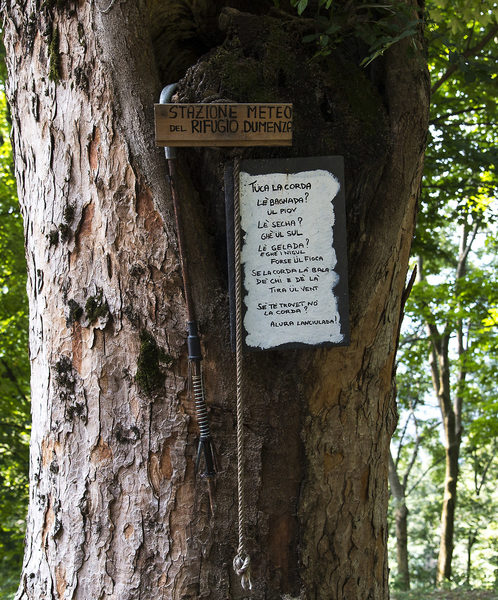 STAZIONE METEO
DEL RIFUGIO DUMENZA
TUCA LA CORDA
LÈ BAGNADA?
ÜL PIOV
LÈ SECHA?
GHÈ ÜL SUL
LÈ GELADA?
E GHÈ I NIGUL
FORSE ÜL FIOCA
SE LA CORDA LA BALA
DE CHI E DE LÀ
TIRA ÜL VENT
SE TE TROVIT NO
LA CORDA?
ALURA L'ANCIULADA!